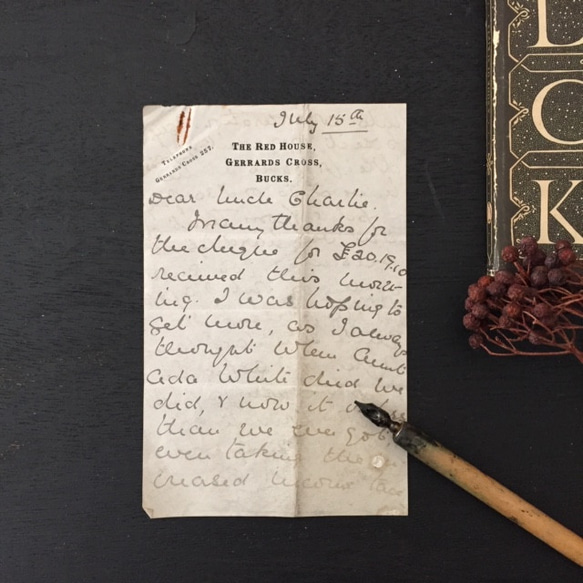 July 15th
TELEPHONE
GERRARDS CROSS 257.
THE RED HOUSE,
GERRARDS CROSS,
BUCKS.
Dear Uncle Charlie.
Many thanks for
the cheque for £20.19.10
received this morn-
ing. I was hoping to
get more, as I always
thought when Aunt
Ada White died we
did, & now it
than we ever got
even taking the
creased income tax
D
C
K